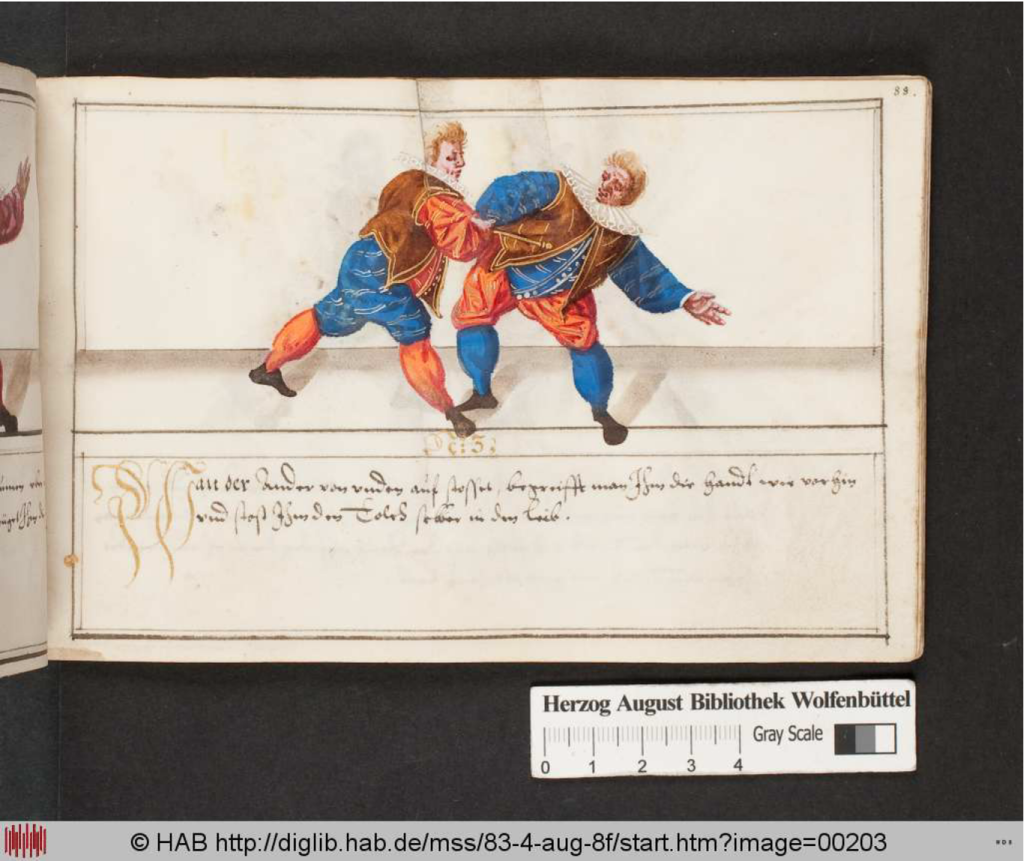 88.
N: 5:
Wan der Ander von vnden auf stosset, begreifft man Ihm die handt wie vor hin
vnd stost Ihm den Tolch selber in den leib.
Herzog August Bibliothek Wolfenbüttel
Gray Scale
0 1 2 3 4
© HAB http://diglib.hab.de/mss/83-4-aug-8f/start.htm?image=00203